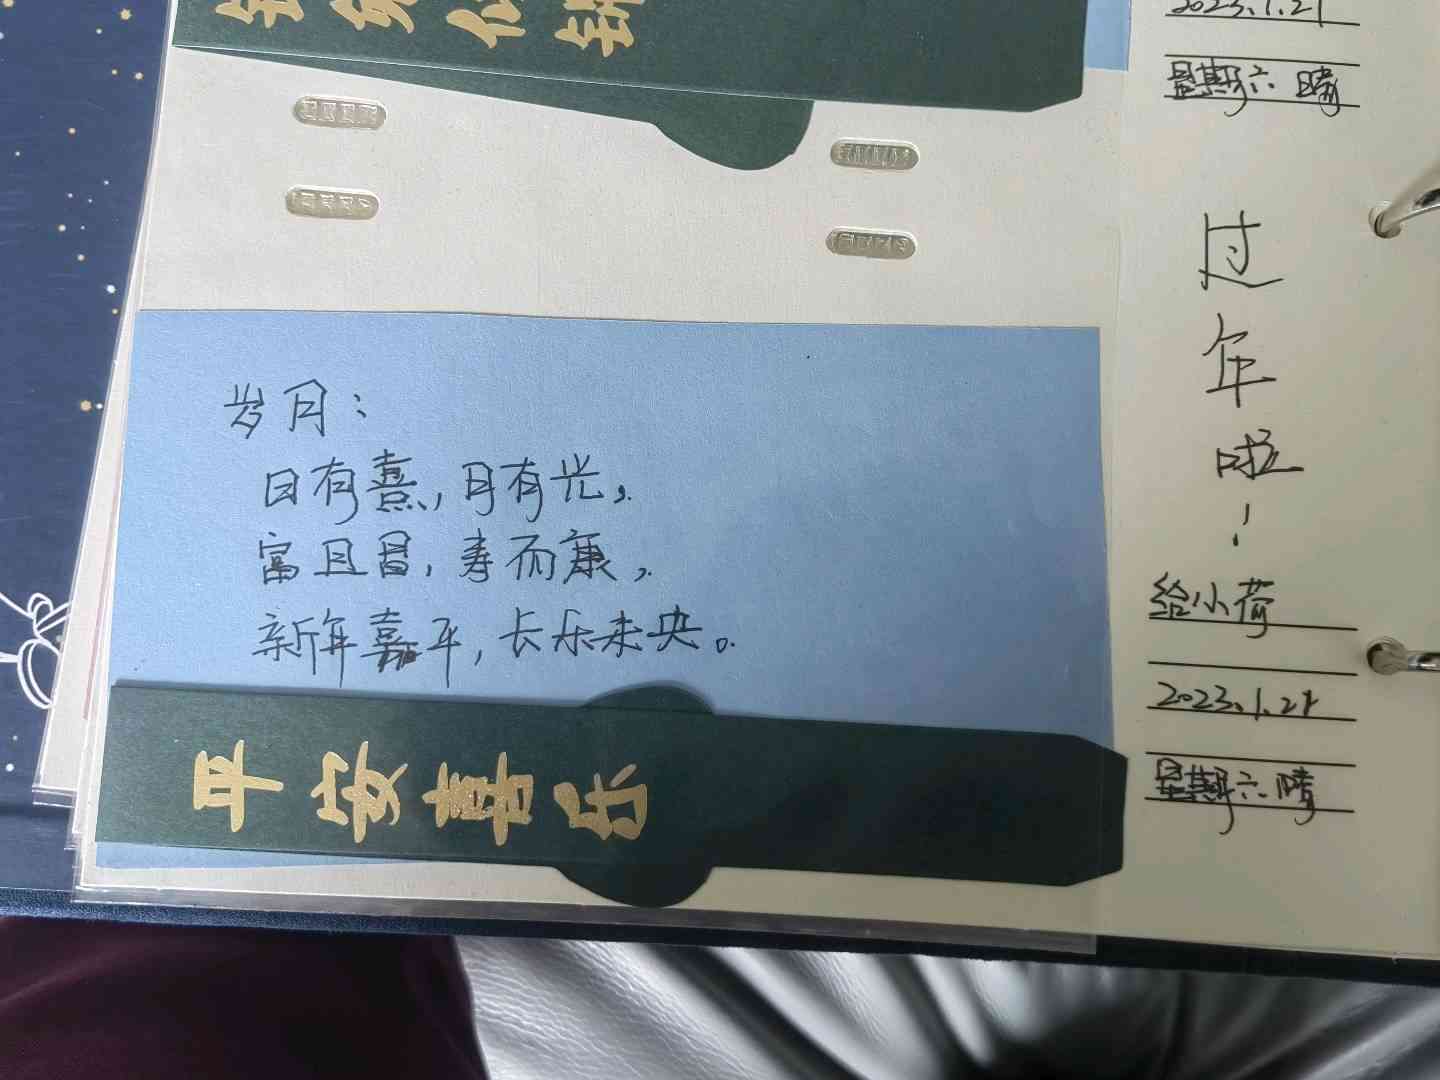 2023.1.21
星期六 晴
岁月：
日有熹，月有光，
富且昌，寿而康，
新年嘉平，长乐未央。
平安喜乐
过
年
啦
！
给小荷
2023.1.21
星期六 晴